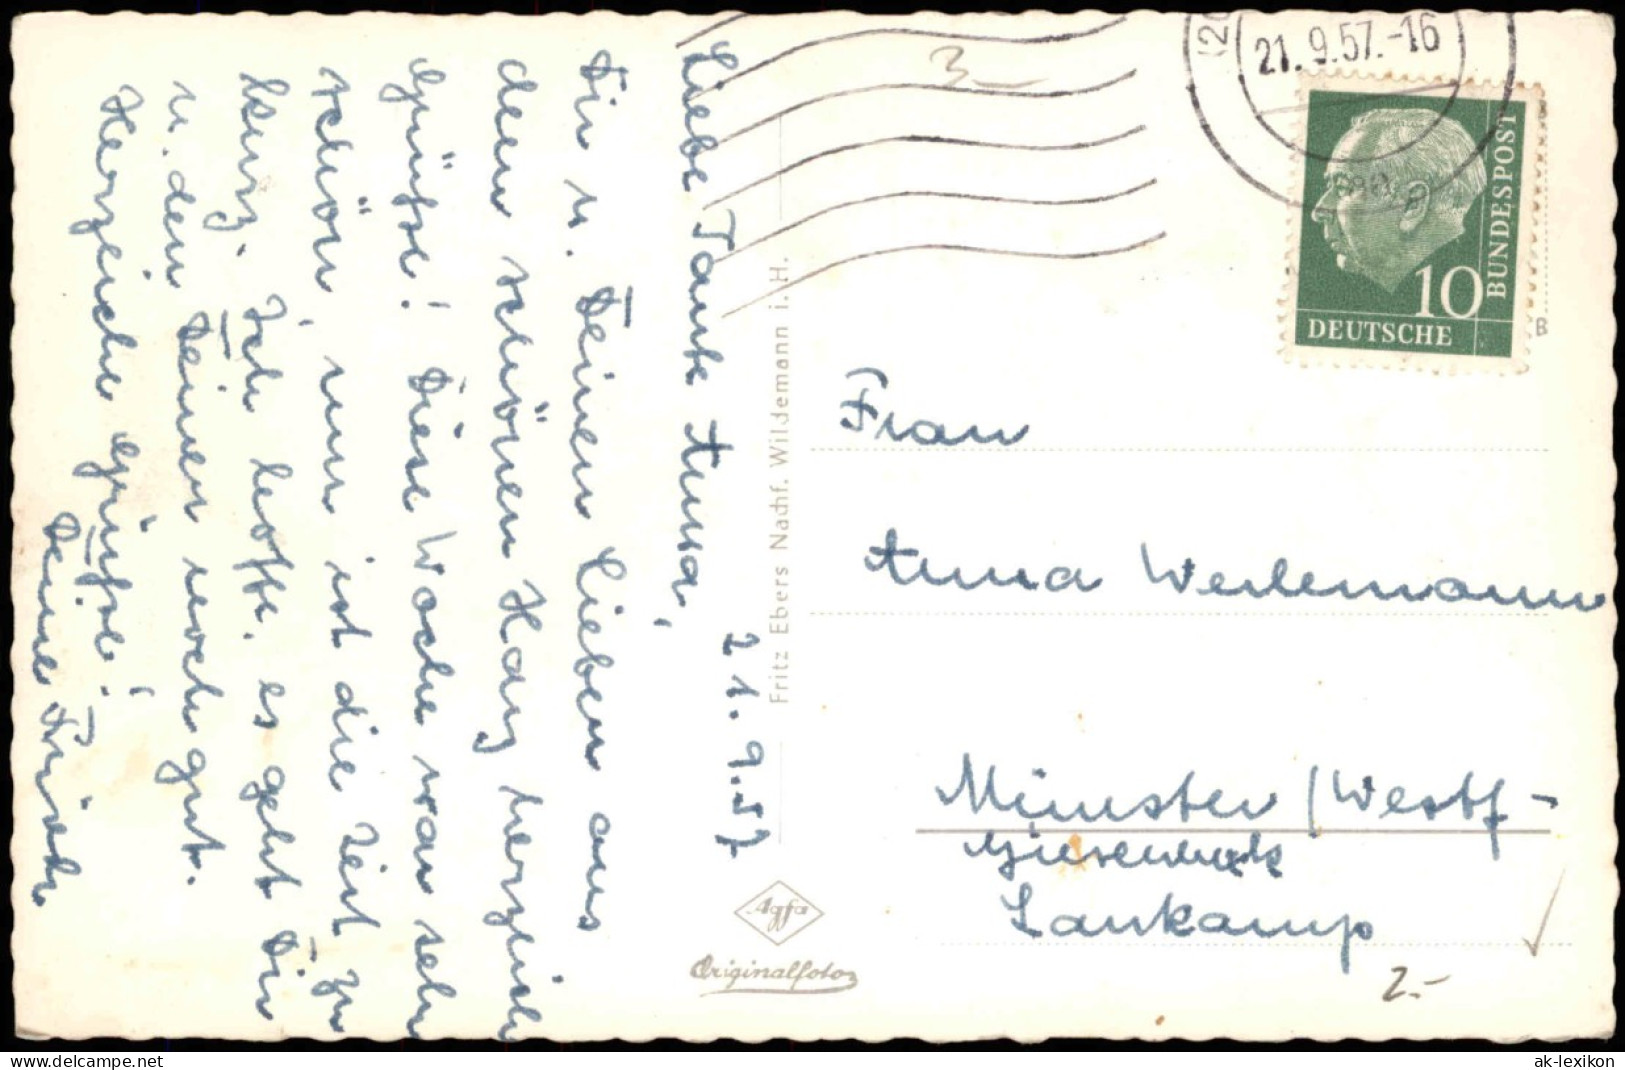 21. 9. 57
Liebe Tante Anna,
Dir u. Deinen Lieben aus
dem schönen Harz herzlich
Grüße! Diese Woche war sehr
schön, nun ist die Zeit zu
kurz. Ich hoffe, es geht Dir
u. den Deinen noch gut.
Herzliche Grüße!
Deine
Fritz Ebers Nachf. Wildemann i. H.
Agfa
Originalfoto
(20
21. 9. 57.-16
10
DEUTSCHE
BUNDESPOST
B
3
Frau
Anna
Münster / Westf -
Lankamp
2.-
ak-lexikon.de